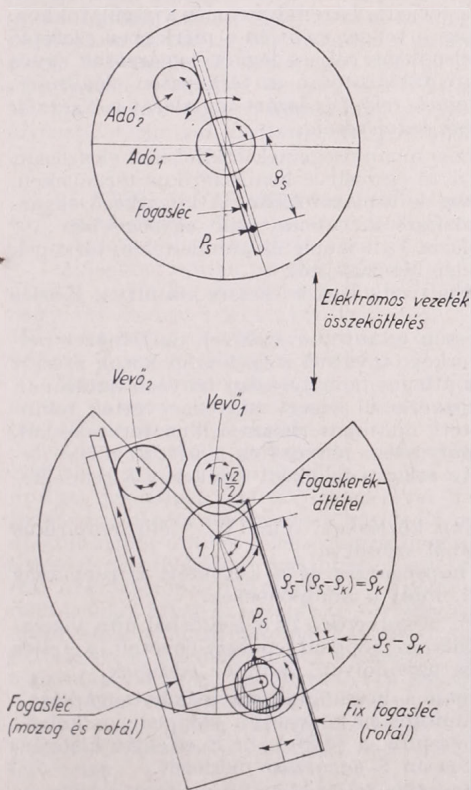 Adó₂
Adó₁
ϱₛ
Fogasléc
Pₛ
Elektromos vezeték
összeköttetés
Vevő₂
Vevő₁
√2/2
Fogaskerék-
áttétel
1
ϱₛ-(ϱₛ-ϱ_K)=ϱ_K*
Pₛ
ϱₛ-ϱ_K
Fogasléc
(mozog és rotál)
Fix fogasléc
(rotál)